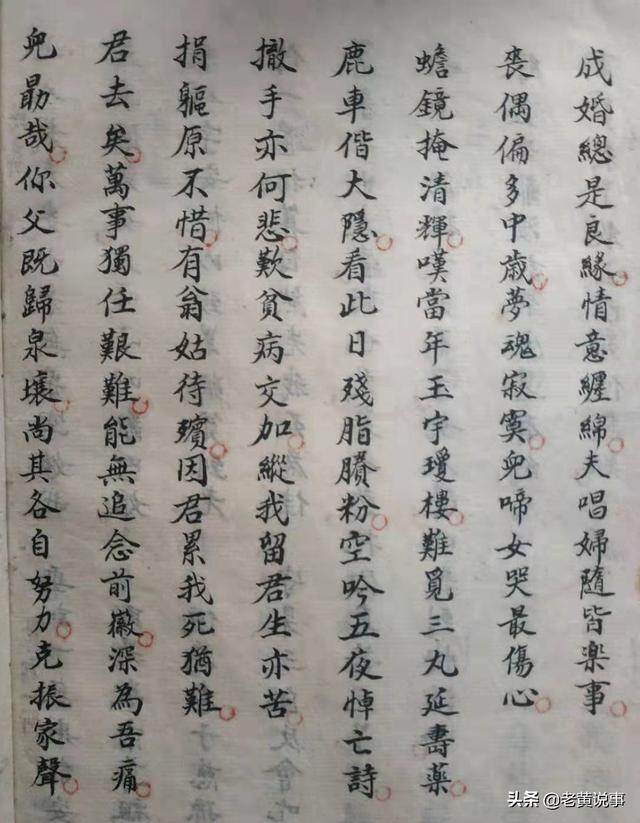 成婚總是良緣情意纏綿夫唱婦隨皆楽事
喪偶偏多中歳夢魂寂寞兒啼女哭最傷心
蟾鏡掩清輝嘆當年玉宇瓊樓難覓三丸延壽藥
鹿車偕大隱看此日殘脂賸粉空吟五夜悼亡詩
撤手亦何悲歎貧病交加縱我留君生亦苦
捐軀原不惜有翁姑待殯因君累我死猶難
君去矣萬事獨任艱難能無追念前徽深為吾痛
兒勖哉你父既歸泉壤尚其各自努力克振家聲
头条 @老黄说事